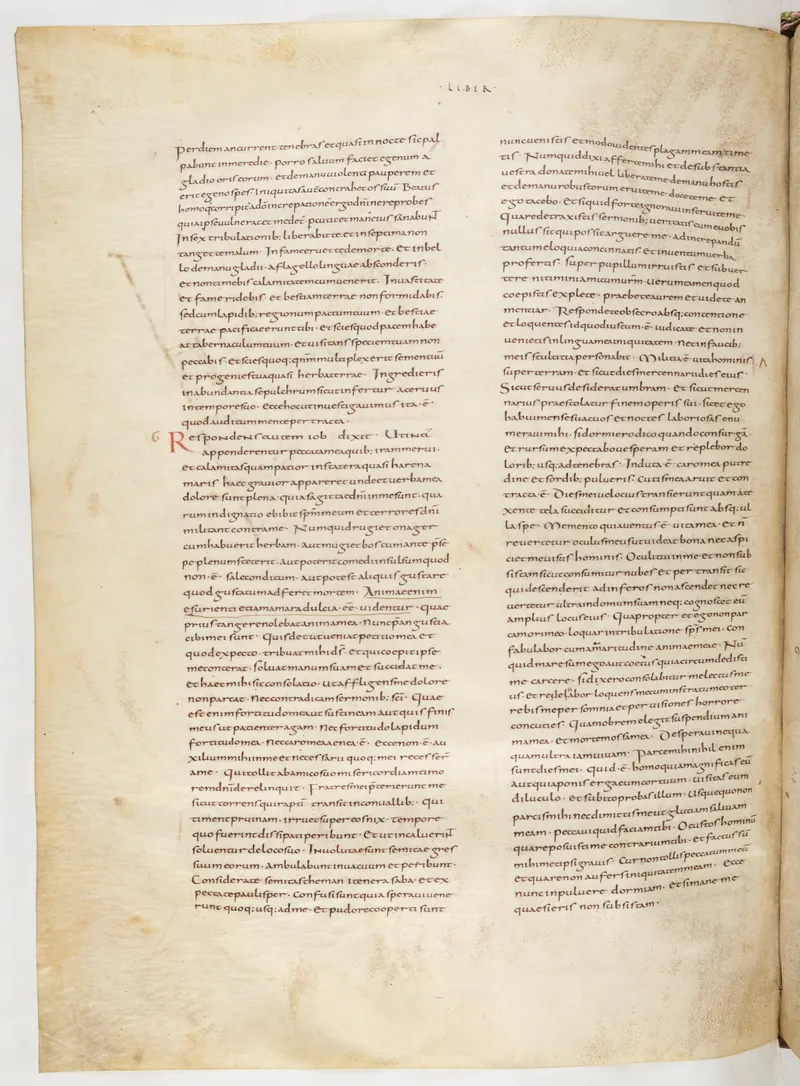 · LIBER ·
Per diem ancurrent tenebras et quasi in nocte sic pal
pabunt in meredie · porro saluum faciet egenum a
gladio oris eorum · et de manu uiolenti pauperem et
erit egeno spes · iniquitas autē contrahet os suū · Beatus
homo qui corripitur a dō increpationē ergo dn̄i ne reprobes
quia ipse uulnerat et medetur percutit et manus eius sanabunt
In sex tribulationib; liberabit te · et in septima non
tanget te malum · In fame eruet te de morte · et in bel
lo de manu gladii · a flagello linguae absconderis ·
et non timebis calamitatem cum uenerit · In uastitate
et fame ridebis · et bestiam terrae non formidabis
sed cum lapidib; regionum pactum tuum · et bestiae
terrae pacificae erunt tibi · et scies quod pacem habe
at tabernaculum tuum · et uisitans speciem tuam non
peccabis · et scies quoq; qm̄ multiplex erit semen tuū
et progenies tua quasi herba terrae · Ingredieris
in abundantia sepulchrum sicut infertur aceruus
in tempore suo · Ecce hoc ut inuestigauimus ita · ē ·
quod auditum mente pertracta ·
6 Respondens autem iob dixit · Utinā
appenderentur peccata mea quib; iram merui ·
et calamitas quam patior in statera quasi harena
maris haec grauior appareret unde et uerba mea
dolore sunt plena · quia sagittae dn̄i in me sunt · qua
rum indignatio ebibit sp̄m meum et terrores dn̄i
militant contra me · Numquid rugiet onager
cum habuerit herbam · Aut mugiet bos cum ante p̄se
pe plenum steterit · Aut poterit comedi insulsum quod
non · ē · sale conditum · aut potest aliquis gustare
quod gustatum adferet mortem · Animae enim
esurienti etiam amara dulcia · ēē · uidentur · quae
prius tangere nolebat anima mea · Nunc p̄ angustia
cibi mei sunt · Quis det ut ueniat petitio mea et
quod expecto · tribuat mihi ds̄ · et qui coepit ipse
me conterat · soluat manum suam et succidat me ·
et haec mihi sit consolatio · ut affligens me dolore
non parcat · Nec contradicam sermonib; sc̄i · Quae
est enim fortitudo mea ut sustineam aut quis finis
meus ut pacienter agam · Nec fortitudo lapidum
fortitudo mea · nec caro mea aenea · ē · ecce non · ē · au
xilium mihi in me et necessarii quoq; mei recesser̄
a me · Qui tollit ab amico suo misericordiam timo
rem dn̄i derelinquit · Fratres mei p̄terierunt me
sicut torrens qui raptī transit in conuallib; · Qui
timent pruinam · irruet super eos nix · tempore
quo fuerint dissipati peribunt · Et ut incaluerint
soluentur de loco suo · Inuolutae sunt semitae gres
suum eorum · Ambulabunt in uacuum et peribunt ·
Considerate semitas theman itenera saba · et ex
pectate paulisper · Confusi sunt quia speraui uene
runt quoq; usq; ad me · et pudore cooperti sunt
nunc uenistis et modo uidentes plagam meam time
tis · Numquid dixi afferte mihi et de substantia
uestra donate mihi uel liberate me de manu hostis
et de manu robustorum eruite me · docete me · et
ego tacebo · et si quid forte ignoraui instruite me ·
Quare detraxistis sermonib; ueritatis cum e uobis
nullus sic qui possit arguere me · ad increpandū
tantum eloquia concinnatis et in uentum uerba
profertis · super pupillum irruistis et subuer
tere nitimini amicum ur̄m · uerumtamen quod
coepistis explete · praebete aurem et uidete an
mentiar · Respondete obsecro absq; contentione
et loquentes id quod iustum · ē · iudicate · et non in
uenietis in lingua mea iniquitatem · nec in faucib;
meis stultitia personabit · Militia · ē · uita hominis
super terram · et sicut dies mercennarii dies eius ·
Sicut seruus desiderat umbram · et sicut mercen
narius praestolatur finem operis sui · sic et ego
habui menses uacuos et noctes laboriosas enu
meraui mihi · si dormiero dico quando consurgā ·
et rursum expectabo uesperam · et replebor do
lorib; usq; ad tenebras · Induta · ē · caro mea putre
dine et sordib; pulueris · cutis mea aruit et con
tracta · ē · Dies mei uelocius transierunt quam a te
xente tela succiditur et consumpti sunt absq; ul
la spe · Memento quia uentus · ē · uita mea · et n̄
reuertetur oculus meus ut uideat bona nec aspi
ciet me uisus hominis · Oculi tui in me et non sub
sistam sicut consumitur nubes et pertransit sic
qui descenderit ad inferos non ascendet nec re
uertetur ultra in domum suam neq; cognoscet eū
amplius locus eius · Quapropter et ego non par
cam ori meo · loquar in tribulatione sp̄s mei · con
fabulabor cum amaritudine animae meae · Nū
quid mare sum ego aut coetus quia circumdedisti
me carcere · si dixero consolabitur me lectus me
us · et releuabor loquens mecum in strato meo ter
rebis me per somnia et per uisiones horrore
concuties · Quam ob rem elegit suspendium ani
ma mea · et mortem ossa mea · Desperaui nequa
quam ultra iam uiuam · Parce mihi nihil enim
sunt dies mei · quid · ē · homo quia magnificas eū
aut qua ponis erga eum cor tuum · uisitas eum
diluculo · et subito probas illum · Usquequo non
parcis mihi nec dimittis me ut glutiam saliuam
meam · peccaui quid faciam tibi · O custos hominū
quare posuisti me contrarium tibi · et factus sū
mihimet ipsi grauis · Cur non tollis peccatum meū
et quare non aufers iniquitatem meam · Ecce
nunc in puluere dormiam · et si mane me
quaesieris non subsistam ·